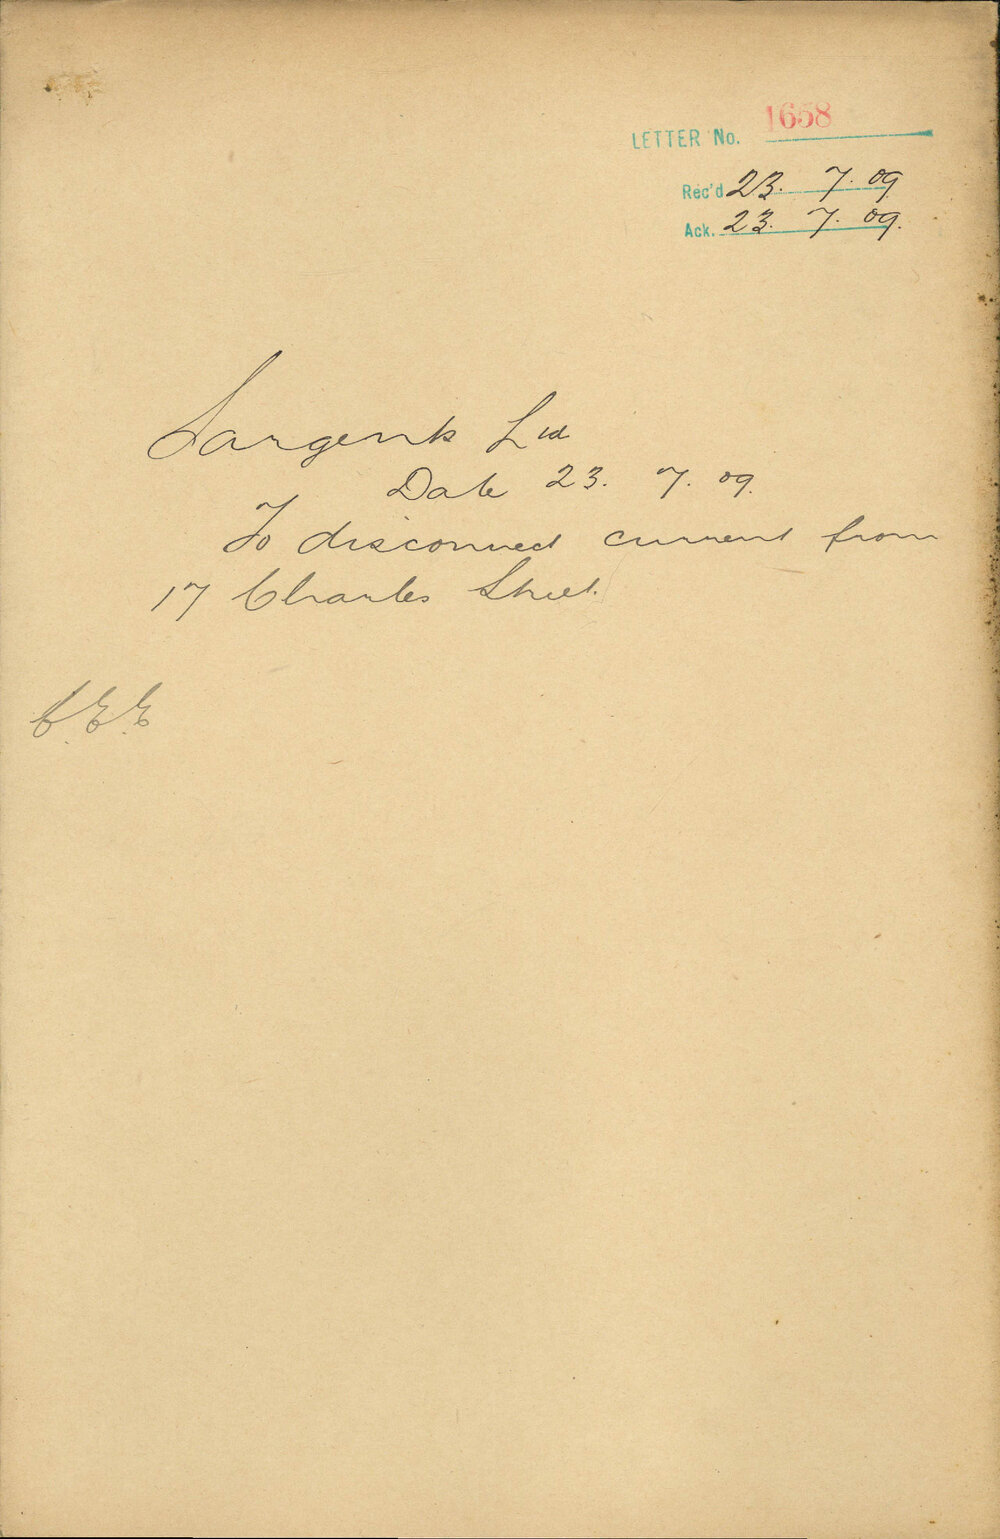 LETTER No. 1658
Rec'd 23. 7. 09
Ack. 23. 7. 09.
Sargents Ltd
Date 23. 7. 09.
To disconnect current from
17 Charles Street.
C.E.E